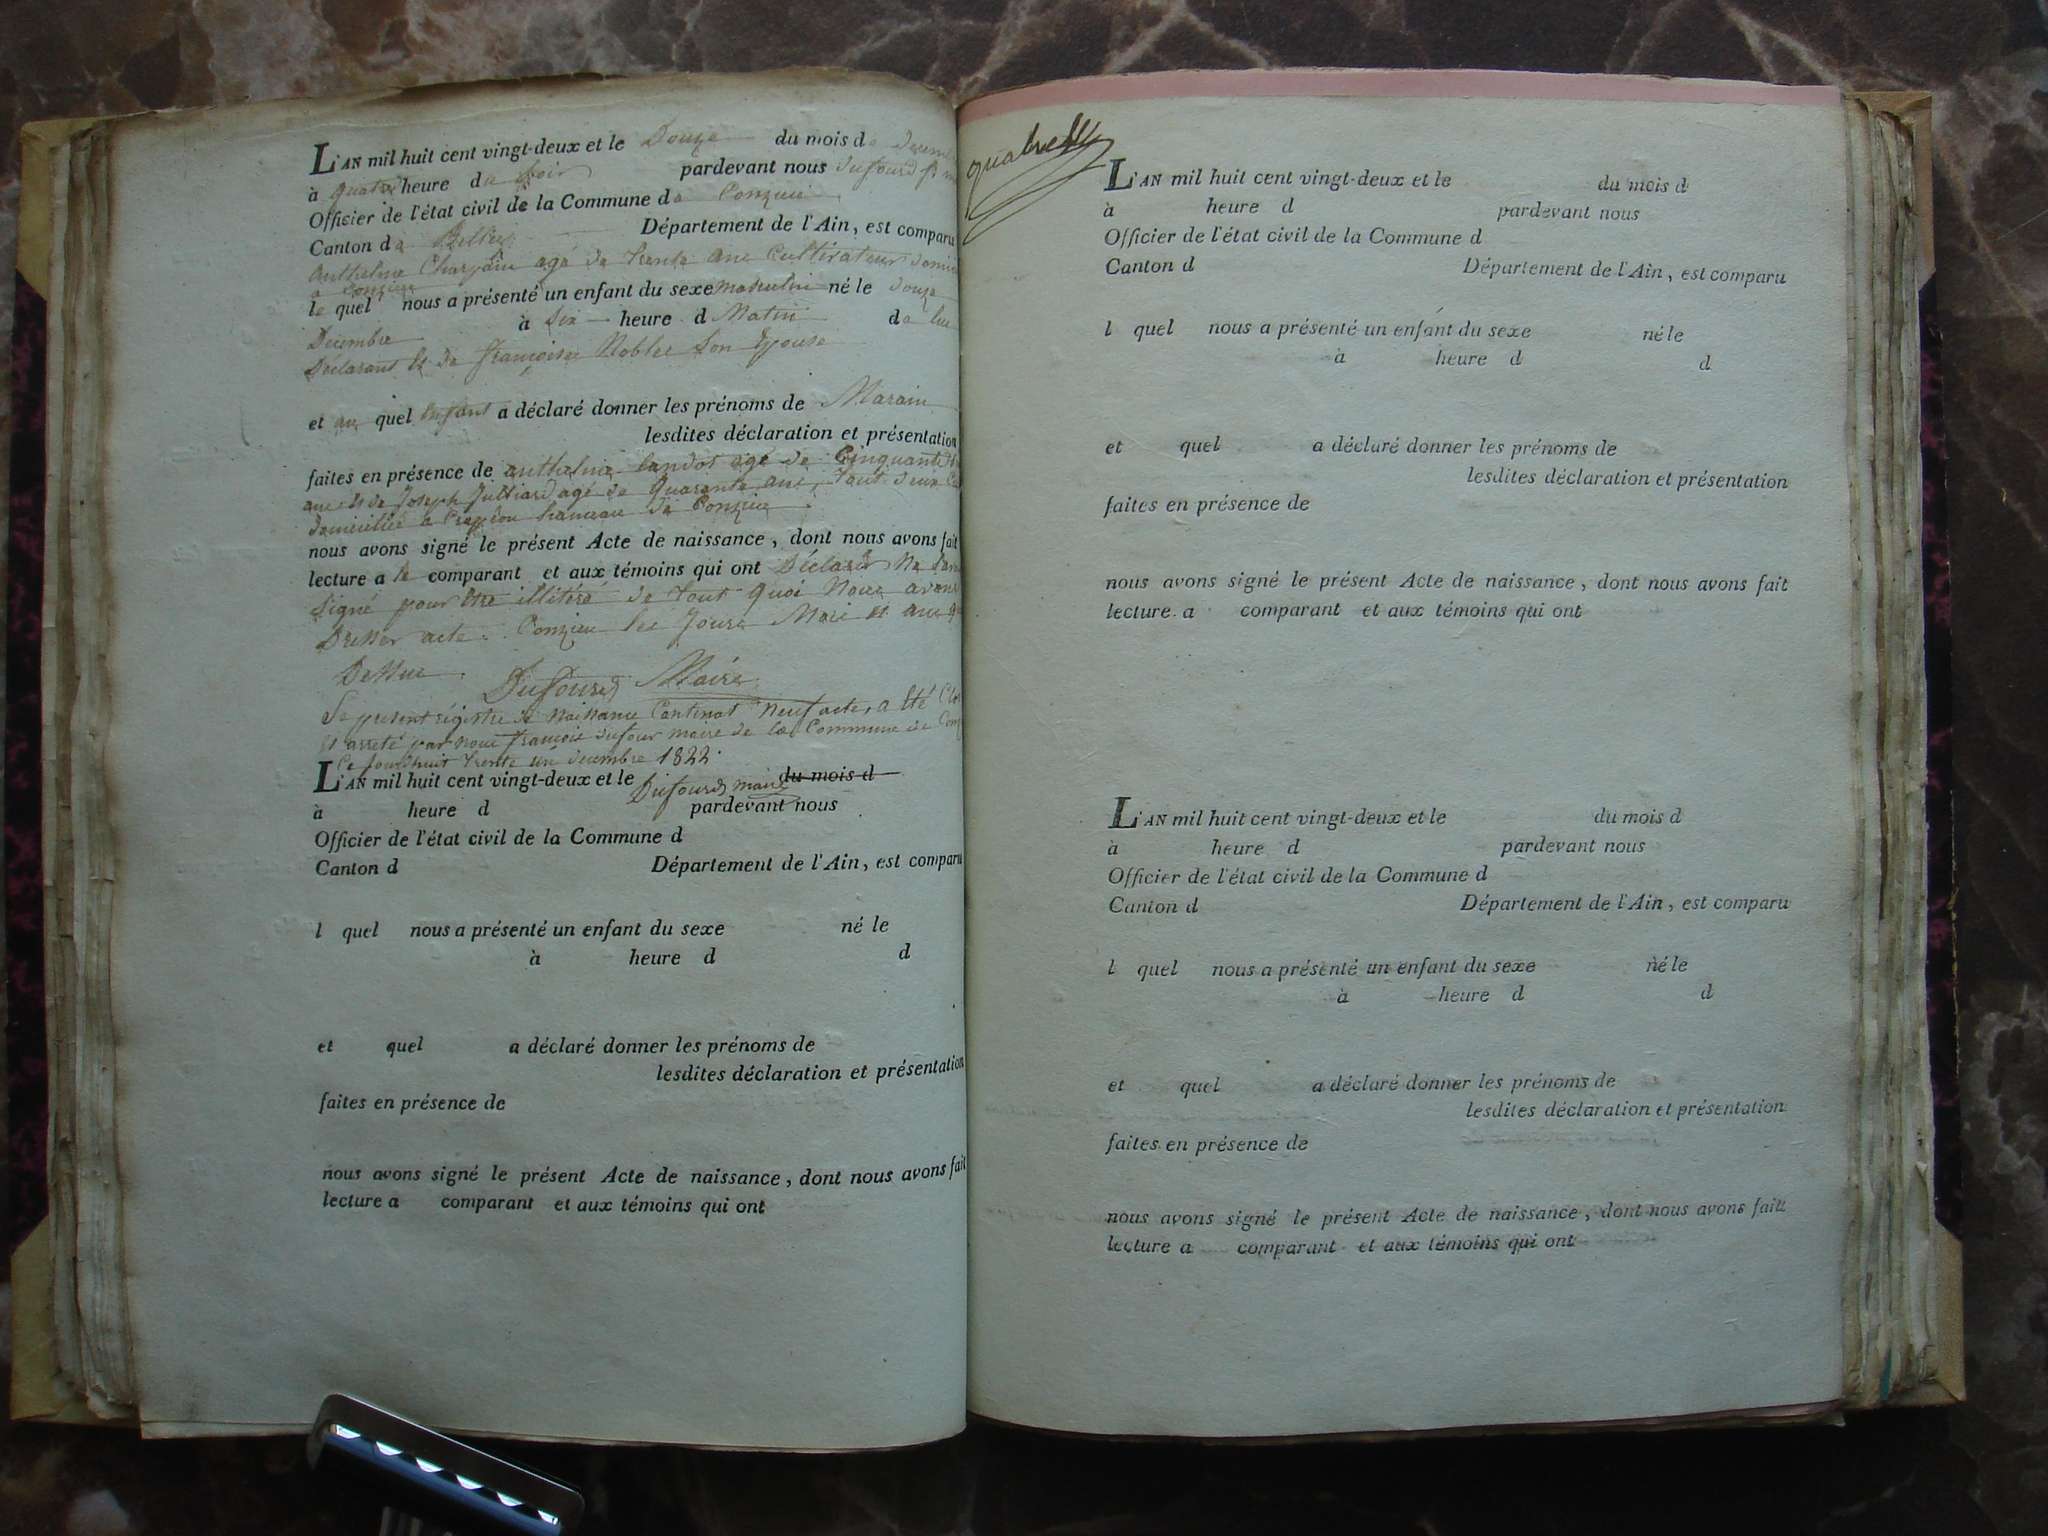 L'AN mil huit cent vingt-deux et le Douze du mois de
à quatre heure du soir pardevant nous dufourd
Officier de l'état civil de la Commune de Conzieu
Canton de Belley Département de l'Ain, est comparu
Anthelme agé de trente ans Cultivateur
a Conzieu
le quel nous a présenté un enfant du sexe masculin né le douze
Decembre à Six heure d Matin de lui
Déclarant et de françoise Noblet Son Epouse
et au quel enfant a déclaré donner les prénoms de Marain
lesdites déclaration et présentation
faites en présence de anthelme landot agé de Cinquante
ans et de Joseph Julliard agé de Quarante ans, tout deux
domiciliés a hameau de Conzieu
nous avons signé le présent Acte de naissance, dont nous avons fait
lecture a le comparant et aux témoins qui ont Déclaré Ne
Signé pour être illitéré de tout quoi Nous avons
Dresser acte. Conzieu les Jours Mois et an
Dessus. Dufourd Maire
Le present régistre de Naissance Contenat Neuf actes, a été
et arreté par nous françois dufour maire de la Commune de
Ce Jourdhuit trente un decembre 1822.
L'AN mil huit cent vingt-deux et le du mois d
Dufourd maire
à heure d pardevant nous
Officier de l'état civil de la Commune d
Canton d Département de l'Ain, est comparu
l quel nous a présenté un enfant du sexe né le
à heure d d
et quel a déclaré donner les prénoms de
lesdites déclaration et présentation
faites en présence de
nous avons signé le présent Acte de naissance, dont nous avons fait
lecture a comparant et aux témoins qui ont
L'AN mil huit cent vingt-deux et le du mois d
à heure d pardevant nous
Officier de l'état civil de la Commune d
Canton d Département de l'Ain, est comparu
l quel nous a présenté un enfant du sexe né le
à heure d d
et quel a déclaré donner les prénoms de
lesdites déclaration et présentation
faites en présence de
nous avons signé le présent Acte de naissance, dont nous avons fait
lecture a comparant et aux témoins qui ont
L'AN mil huit cent vingt-deux et le du mois d
à heure d pardevant nous
Officier de l'état civil de la Commune d
Canton d Département de l'Ain, est comparu
l quel nous a présenté un enfant du sexe né le
à heure d d
et quel a déclaré donner les prénoms de
lesdites déclaration et présentation
faites en présence de
nous avons signé le présent Acte de naissance, dont nous avons fait
lecture a comparant et aux témoins qui ont